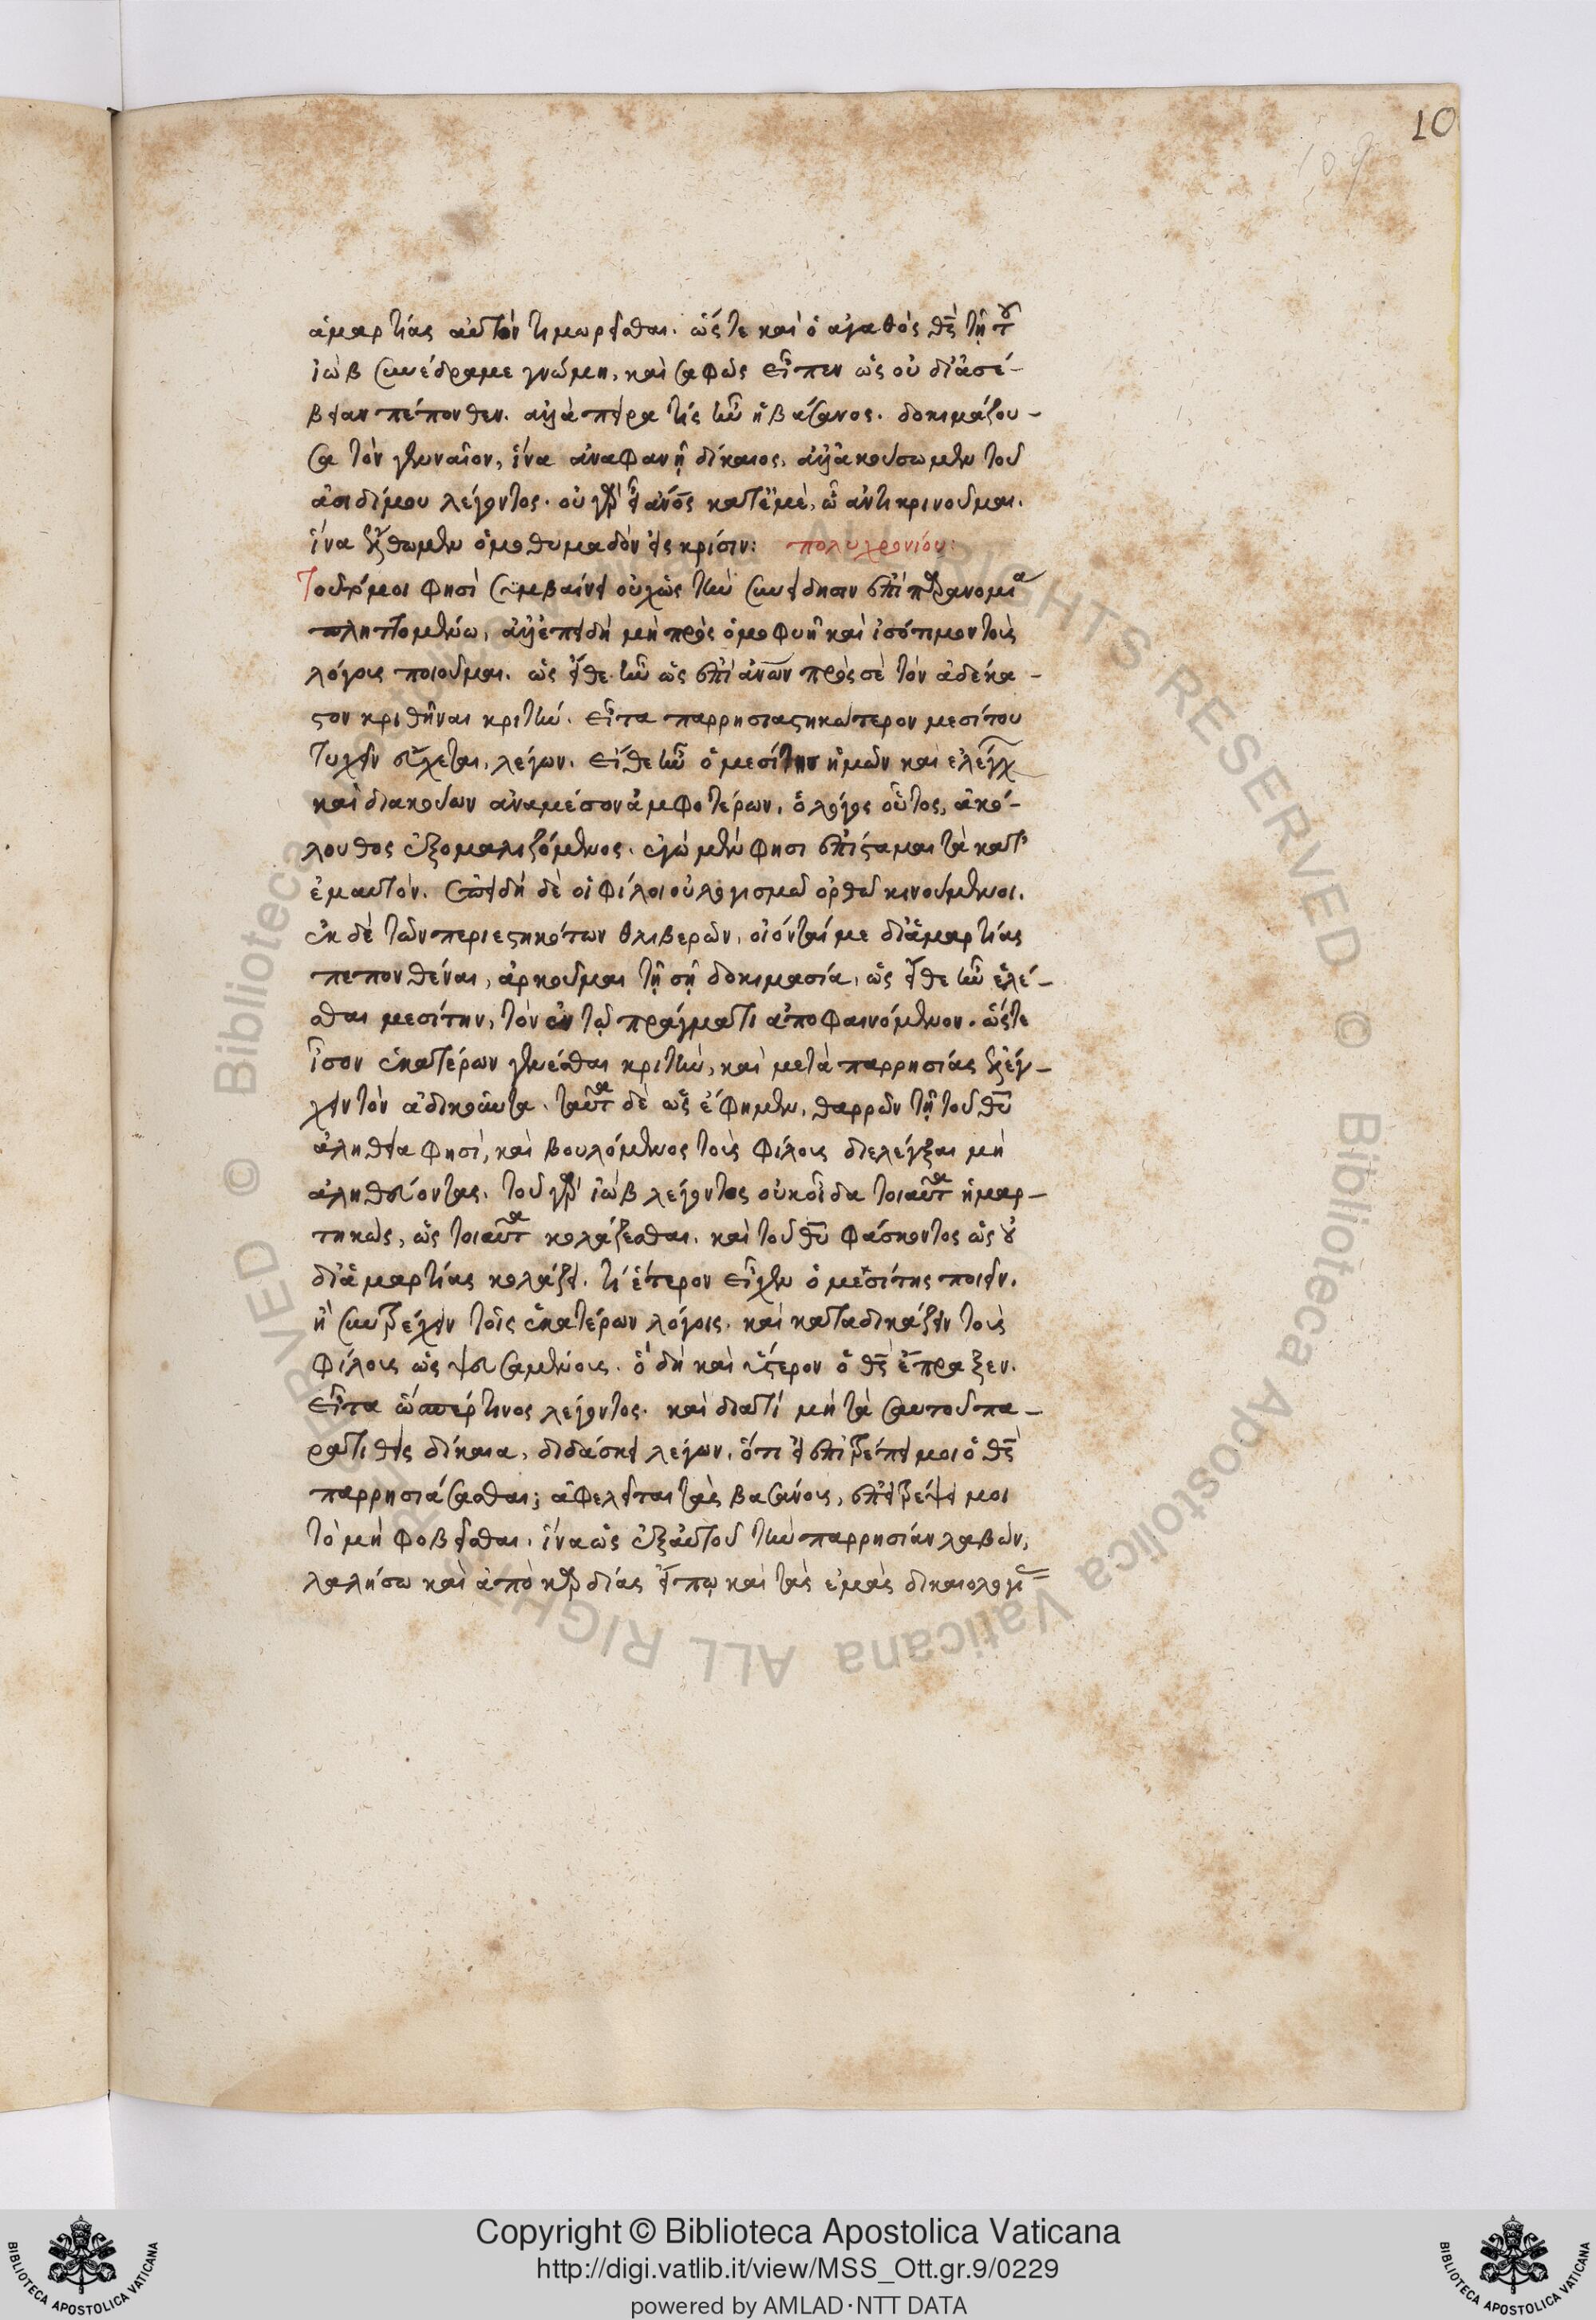 10
109
ἁμαρτίας αὐτὸν τιμωρεῖσθαι. ὥστε καὶ ὁ ἀγαθὸς θς̅ τῇ τοῦ
ἰὼβ συνέδραμε γνώμῃ, καὶ σαφῶς εἶπεν ὡς οὐ δι' ἀσέ-
βειαν πέπονθεν. ἀλλὰ πεῖρα τίς ἦν ἡ βάσανος. δοκιμάζου-
σα τὸν γενναῖον, ἵνα ἀναφανῇ δίκαιος. ἀλλ' ἀκούσωμεν τοῦ
ἀοιδίμου λέγοντος. οὐ γὰρ εἶ ἀνο̅ς κατ' ἐμὲ, ᾧ ἀντικρινοῦμαι.
ἵνα ἔλθωμεν ὁμοθυμαδὸν εἰς κρίσιν: πολυχρονίου:
Τοῦτό μοι φησὶ συμβαίνει οὐχ ὡς τὴν συνείδησιν ἐπὶ παρανομία
πληττομένω, ἀλλ' ἐπειδὴ μὴ πρὸς ὁμοφυῆ καὶ ἰσότιμον τοὺς
λόγους ποιοῦμαι. ὡς εἴθε ἦν ὡς ἐπὶ ἀνω̅ν πρὸς σὲ τὸν ἀδέκα-
στον κριθῆναι κριτήν. εἶτα παρρησιαστικώτερον μεσίτου
τυχεῖν εὔχεται, λέγων. εἴθε ἦν ὁ μεσίτης ἡμῶν καὶ ἐλέγχων
καὶ διακούων ἀναμέσον ἀμφοτέρων. ὁ λόγος οὗτος, ἀκό-
λουθος ἐξομαλιζόμενος. ἐγὼ μέν φησι ἐπίσταμαι τὰ κατ'
ἐμαυτόν. ἐπειδὴ δὲ οἱ φίλοι οὐ λογισμῶ ὀρθῶ κινούμενοι.
ἐκ δὲ τῶν περιεστηκότων θλιβερῶν, οἴονταί με δι' ἁμαρτίας
πεπονθέναι, ἀρκοῦμαι τῇ σῇ δοκιμασία, ὡς εἴθε ἦν ἑλέ-
σθαι μεσίτην, τὸν ἐν τῷ πράγματι ἀποφαινόμενον. ὥστε
ἶσον ἑκατέρων γενέσθαι κριτὴν, καὶ μετὰ παρρησίας ἐλέγ-
χειν τὸν ἀδικοῦντα. ταῦτα δὲ ὡς ἔφημεν, θαρρῶν τῇ τοῦ θυ̅
ἀληθεία φησὶ, καὶ βουλόμενος τοὺς φίλους διελέγξαι μὴ
ἀληθεύοντας. τοῦ γὰρ ἰὼβ λέγοντος οὐκ οἶδα τοιαῦτα ἡμαρ-
τηκὼς, ὡς τοιαῦτα κολάζεσθαι. καὶ τοῦ θυ̅ φάσκοντος ὡς οὐ
δι' ἁμαρτίας κολάζει. τί ἕτερον εἶχεν ὁ μεσίτης ποιεῖν.
ἢ συντρέχειν τοῖς ἑκατέρων λόγοις. καὶ καταδικάζειν τοὺς
φίλους ὡς ψευσαμένους. ὃ δὴ καὶ ὕστερον ὁ θς̅ ἔπραξεν.
εἶτα ὥσπέρ τινος λέγοντος. καὶ διατί μὴ τὰ σαυτοῦ πα-
ρατιθεῖς δίκαια, διδάσκει λέγων, ὅτι εἰ ἐπιτρέπει μοι ὁ θς̅
παρρησιάσασθαι; ἀφελεῖται τὰς βασάνους, ἐπιτρέψει μοι
τὸ μὴ φοβεῖσθαι. ἵνα ὡς ἐξ αὐτοῦ τὴν παρρησίαν λαβὼν,
λαλήσω καὶ ἀπὸ καρδίας εἴπω καὶ τὰς ἐμὰς δικαιολογίας
Copyright © Biblioteca Apostolica Vaticana
http://digi.vatlib.it/view/MSS_Ott.gr.9/0229
powered by AMLAD·NTT DATA